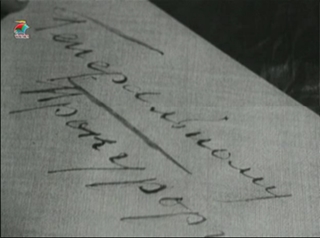 Генеральному
Прокурору